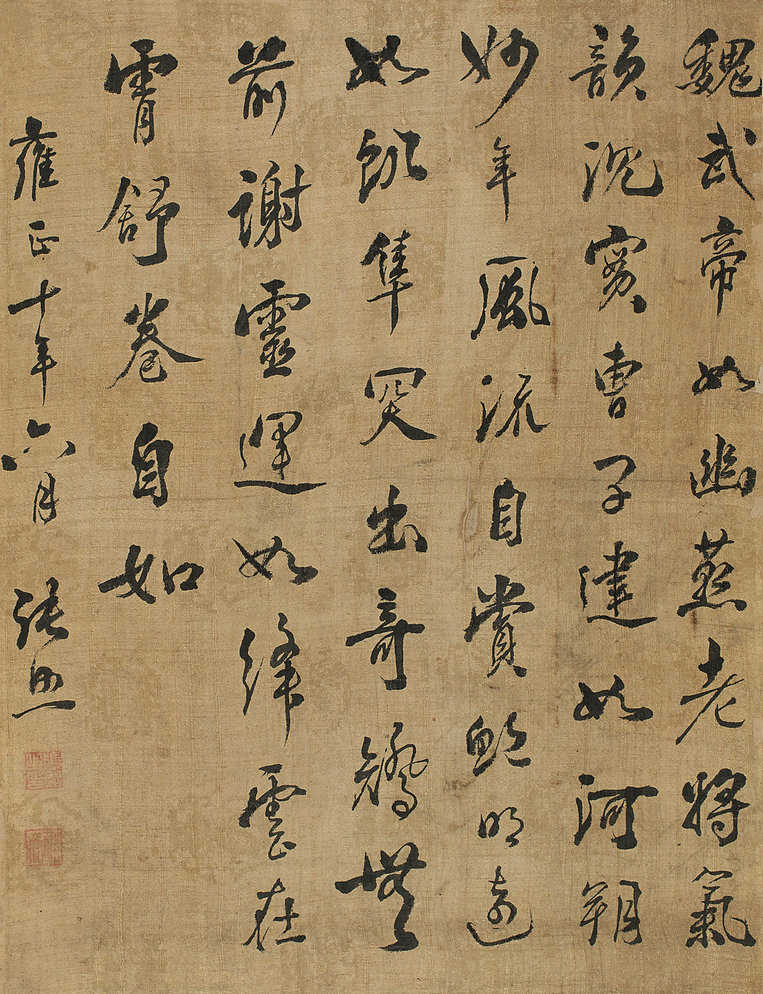 魏武帝如幽燕老將氣
韻沉實曹子建如河朔
妙年風流自賞鮑明遠
如飢隼突出奇矯無
前謝靈運如絳雲在
霄舒卷自如
雍正十年六月 張照